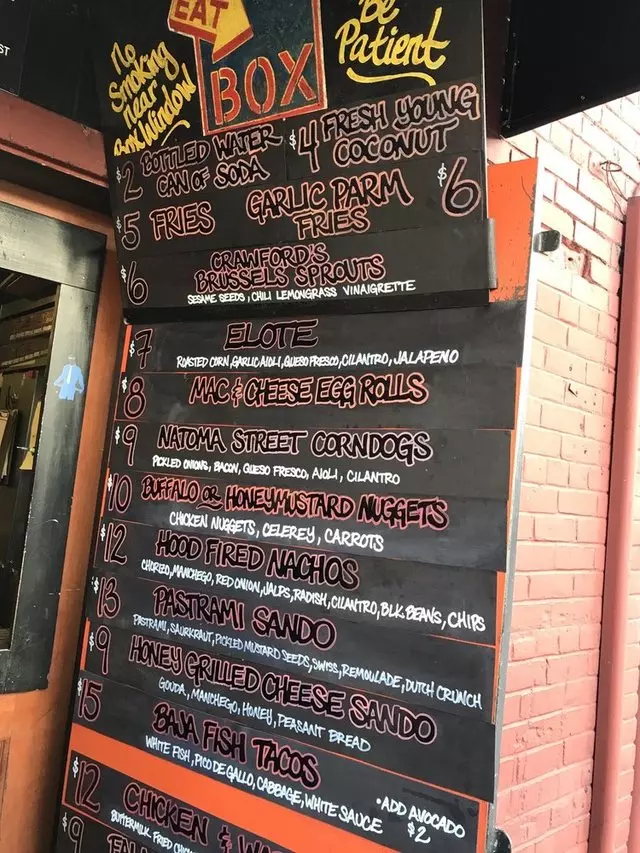 ST
EAT
BOX
No
Smoking
near
Box Window
Be
Patient
$2 BOTTLED WATER
CAN OF SODA
$4 FRESH YOUNG
COCONUT
$5 FRIES
GARLIC PARM
FRIES $6
$6 CRAWFORD'S
BRUSSELS SPROUTS
SESAME SEEDS, CHILI LEMONGRASS VINAIGRETTE
$7 ELOTE
ROASTED CORN, GARLIC AIOLI, QUESO FRESCO, CILANTRO, JALAPENO
$8 MAC & CHEESE EGG ROLLS
$9 NATOMA STREET CORNDOGS
PICKLED ONIONS, BACON, QUESO FRESCO, AIOLI, CILANTRO
$10 BUFFALO OR HONEYMUSTARD NUGGETS
CHICKEN NUGGETS, CELEREY, CARROTS
$12 HOOD FIRED NACHOS
CHORIZO, MANCHEGO, RED ONION, JALPS, RADISH, CILANTRO, BLK. BEANS, CHIPS
$13 PASTRAMI SANDO
PASTRAMI, SAURKRAUT, PICKLED MUSTARD SEEDS, SWISS, REMOULADE, DUTCH CRUNCH
$9 HONEY GRILLED CHEESE SANDO
GOUDA, MANCHEGO, HONEY, PEASANT BREAD
$15 BAJA FISH TACOS
WHITE FISH, PICO DE GALLO, CABBAGE, WHITE SAUCE
•ADD AVOCADO
$2
$12 CHICKEN & W
BUTTERMILK FRIED CHIC
$9